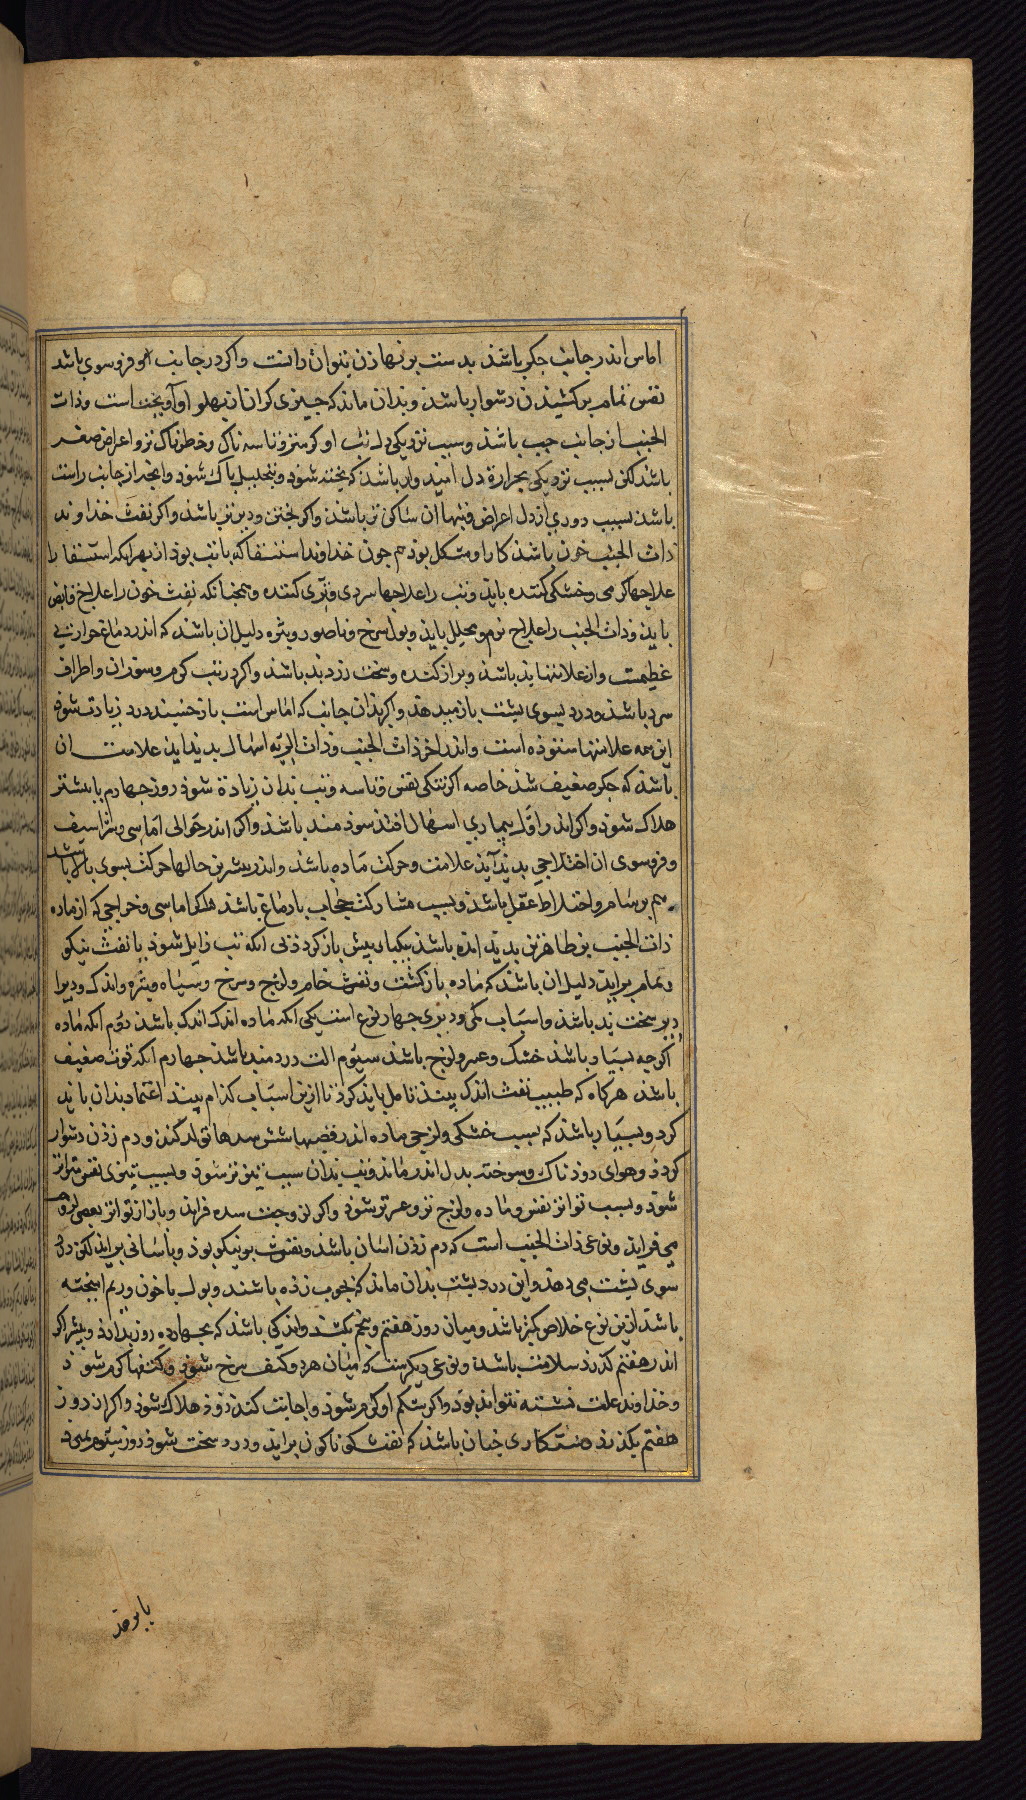 اماس اندر جانب جکر باشذ بدست برنهاذن بتوان دانست واکر در جانب او فروسوی باشد
نفس تمام برکشیذن دشوار باشذ وبدان ماند که چیزی کران از پهلو او آویخته است وذات
الجنب از جانب چپ باشذ وسبب نزدیکی دل تب او کرمتر وتاسه ناک وخطرناک تر واعراض صعبتر
باشذ لکن بسبب نزدیکی بحرارة دل امیذوار باشذ که پخته شوذ وبتحلیل پاک شوذ وانچه از جانب راست
باشذ بسبب دوری از دل اعراض وتبها ان ساکن تر باشذ واکر پختن ودیرتر باشذ واکر نفث خذاوند
ذات الجنب خون باشذ کار او مشکل بوذ هم جون خذاوند استسقا که با تب بوذ از بهر انکه استسقا را
علاجها کرمی وخشکی کننده بایذ وتب را علاجها سردی وتری کننده وهمچنانکه نفث خون را علاج قابض
بایذ وذات الجنب را علاج نرم ومحلل بایذ وبول سرخ وناصور وتیره دلیل ان باشذ که اندر دماغ حرارتی
عظیمست واز علامتها بذ باشذ وبراز کنده وسخت زرد بذ باشذ واکر در تب کرم وسوزان واطراف
سرد باشذ ودرد بسوی پشت باز میدهذ واکر بذان جانب که اماس است باز خسبند درد زیادت شوذ
این همه علامتها ستوذه است واندر اخر ذات الجنب وذات الریه اسهال بدیذ ایذ علامت ان
باشذ که جکر ضعیف شذ خاصه اکر تنکی نفس وتاسه وتب بذان زیادة شوذ روز چهارم یا بیشتر
هلاک شوذ واکر اندر اول بیماری اسهال افتذ سوذمند باشذ واکر اندر حوالی اماسی وشراسیف
وفروسوی ان اختلاجی بدیذ آیذ علامت وحرکت ماده باشذ واندر بیشترین حالها حرکت بسوی بالا باشد
هم برسام واختلاط عقل باشذ وبسبب مشارکت حجاب با دماغ باشذ هرکه اماسی وخراجی که از ماده
ذات الجنب بر ظاهر تن بدیذ امذه باشذ بیکبار پیش باز کردذ بی انکه تب زایل شوذ یا نفث نیکو
وتمام برایذ دلیل ان باشذ که ماده باز کشت ونفث خام ولزج وسرخ وسیاه وتیره واندک ودیر ا
دیر سخت بذ باشذ واسباب کمی ودیری جهار نوع است یکی انکه ماده اندک اندک باشذ دوم انکه ماده
اکرچه بسیار باشذ خشک وعسر ولزج باشذ سیوم الت دردمند باشذ جهارم انکه قوت ضعیف
باشذ هرکاه که طبیب نفث اندک بیند تامل بایذ کرد تا ازین اسباب کذام بیند اعتماد بدان باید
کرد وبسیار باشذ که بسبب خشکی ولزجی ماده اندر قصبهاء شش سدها تولد کند ودم زذن دشوار
کردذ وهوای دوذناک وسوخته بدل اندر ماند وتب بذان سبب تیزتر شوذ وبسبب تیزی نفس متواتر
شوذ وبسبب تواتر نفس وماده ولزج تر وعسرتر شوذ واکر لزوجت سده فزایذ وباز از تواتر بعضی
می فزایذ ونوعی ذات الجنب است که دم زذن اسان باشذ ونفثش بوی نیکو بوذ وباسانی برایذ لکن درد
سوی پشت می دهذ واین درد پشت بذان ماند که بچوب زذه باشند وبول با خون وریم امیخته
باشذ ازین نوع خلاص کمتر باشذ ومیان روز هفتم وپنجم بکشذ واندکی باشذ که بجهارده روز بذارذ وبیشر اکر
اندر هفتم کذرذ سلامت باشذ ونوعی دیکرست که میان هر دو کتف سرخ شوذ وکتفها کرم شوذ
وخذاوند علت نشسته نتواند بوذ واکر شکم او کرم شوذ واجابت کند زوذ هلاک شوذ واکر ان روز
هفتم بکذرذ رستکاری چنان باشذ که نفث کوناکون برایذ ودرد سخت شوذ روز سیوم بمیرذ